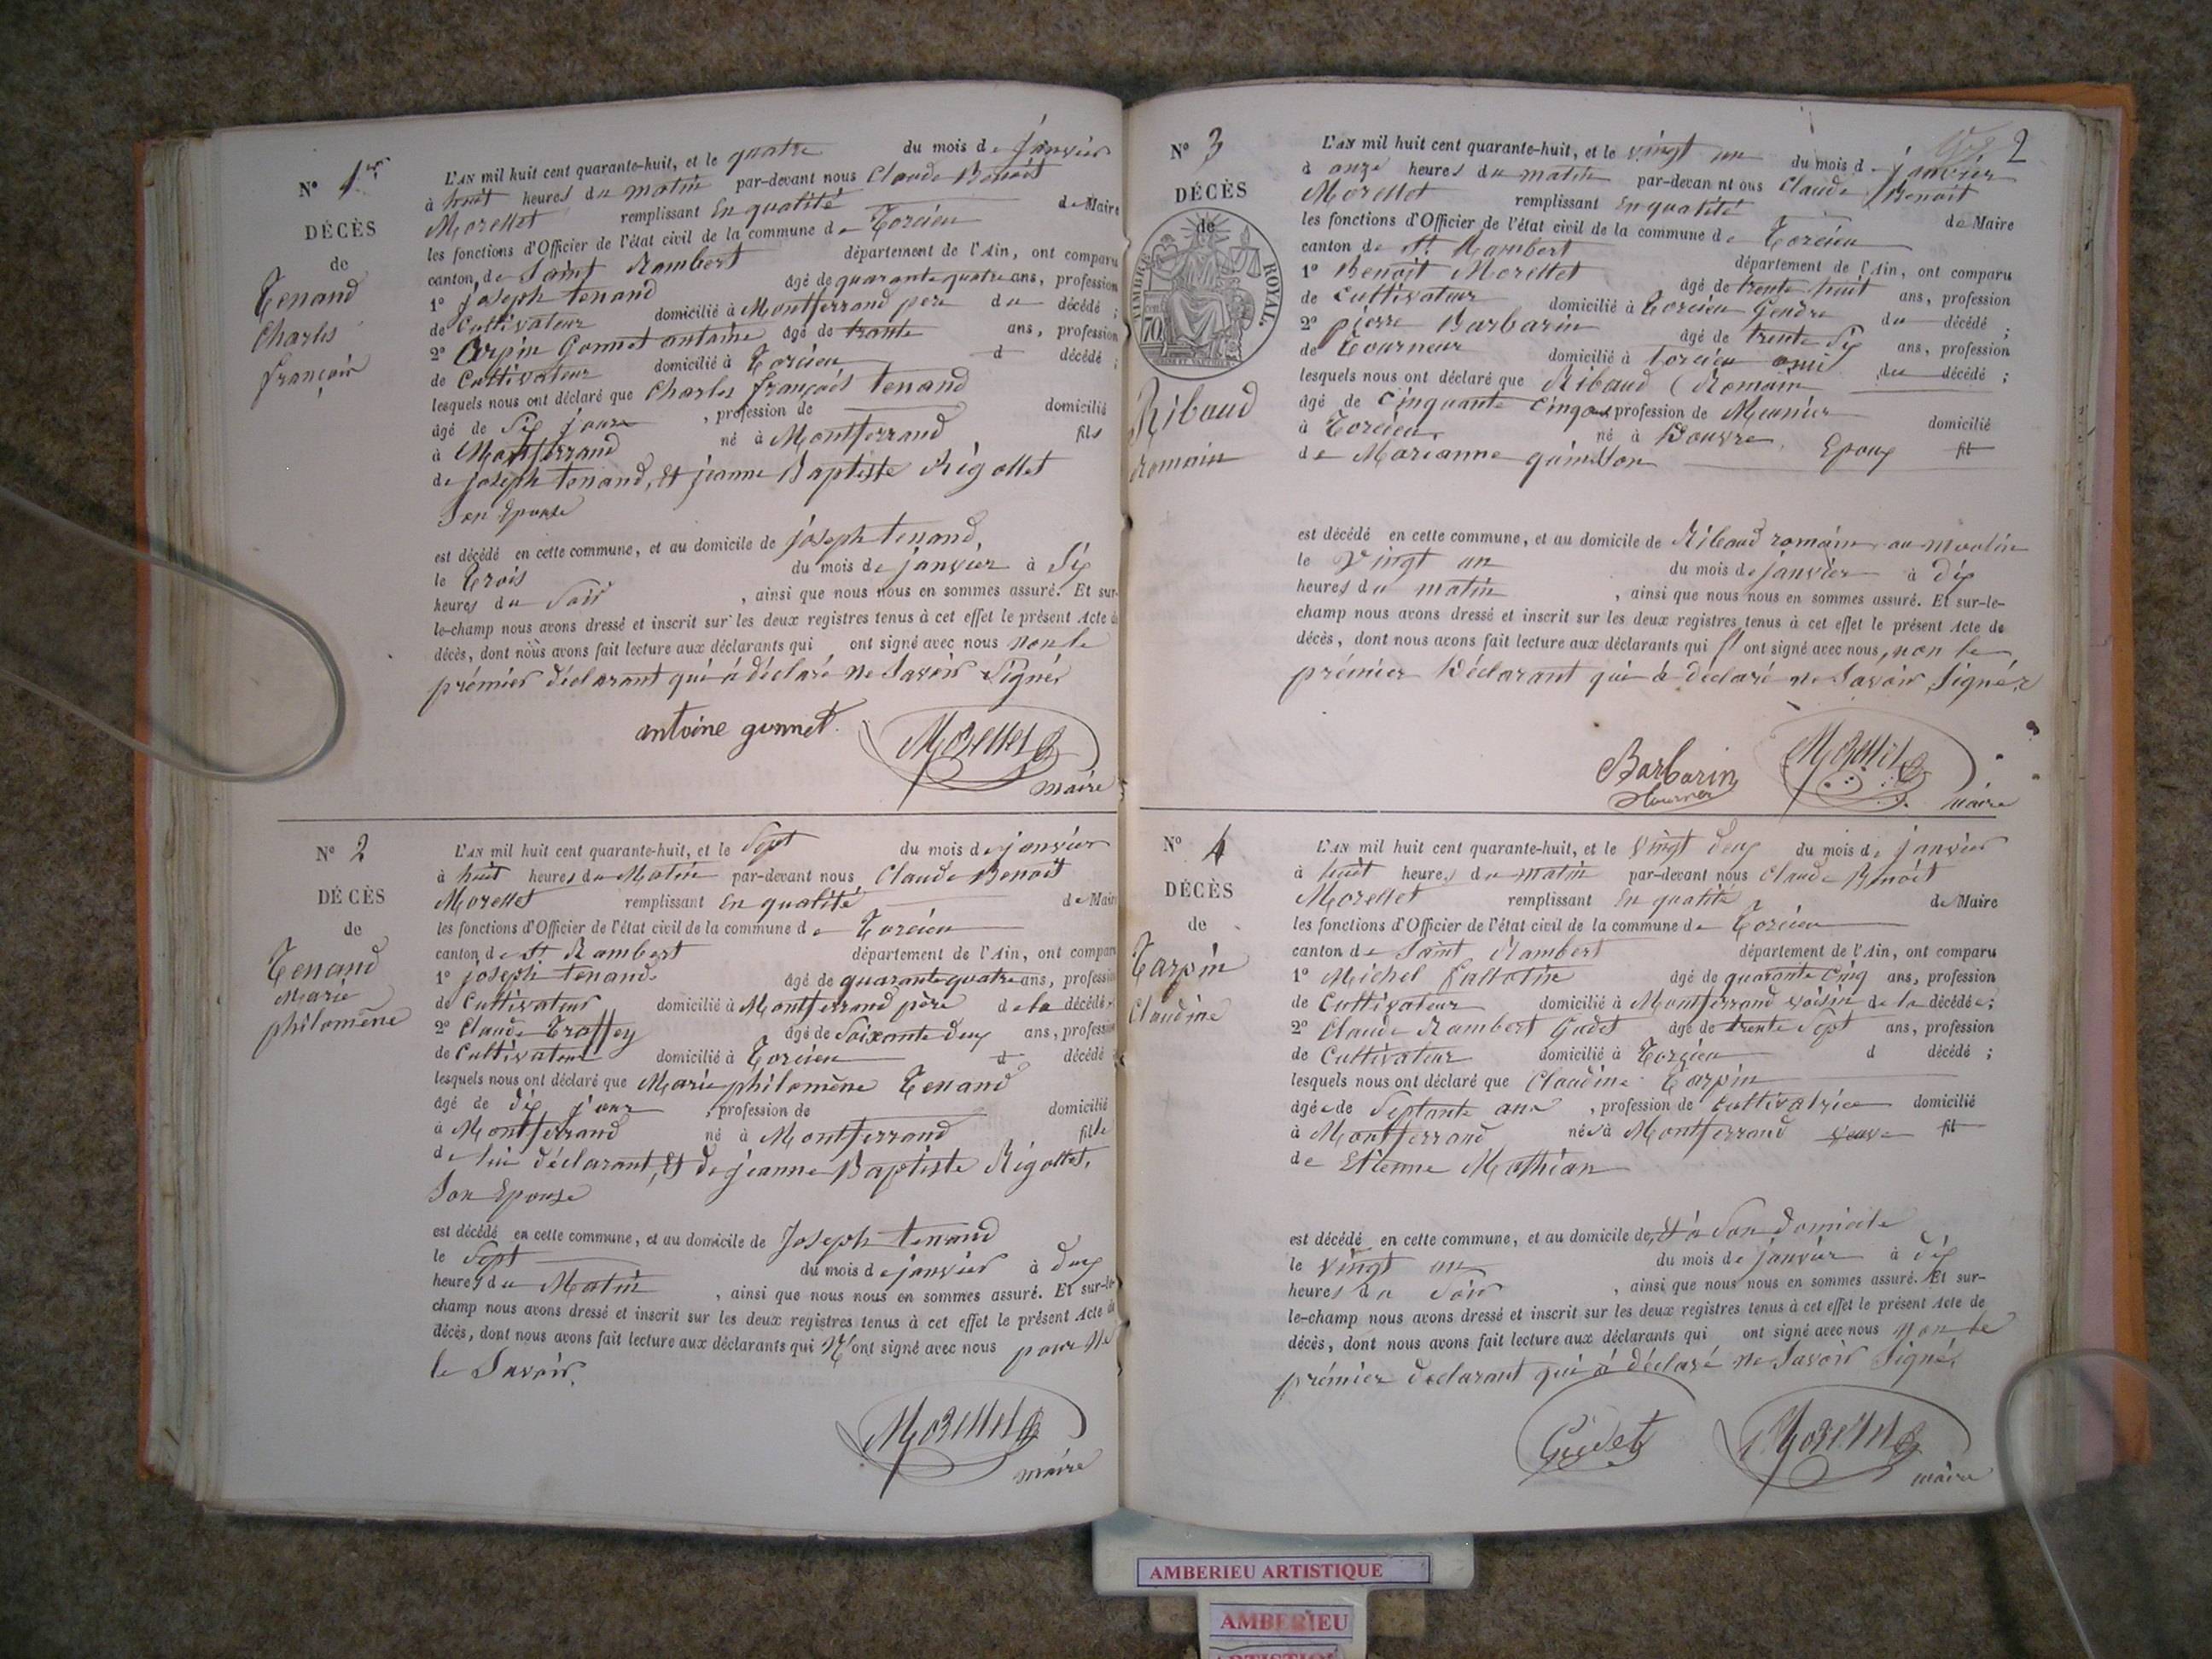 N° 1er
DÉCÈS
de
Tenand
Charles
françois
L'AN mil huit cent quarante-huit, et le quatre du mois de janvier
à huit heures du matin par-devant nous Claude Benoit
Morellet remplissant En qualité de Maire
les fonctions d'Officier de l'état civil de la commune de Torcieu
canton de Saint Rambert département de l'Ain, ont comparu
1° joseph tenand âgé de quarante quatre ans, profession
de Cultivateur domicilié à Montferrand père du décédé ;
2° Gonnet antoine âgé de trante ans, profession
de Cultivateur domicilié à Torcieu d décédé ;
lesquels nous ont déclaré que Charles françois tenand
âgé de Six jours , profession de domicilié
à Montferrand né à Montferrand fils
de joseph tenand, Et jeanne Baptiste Rigollet
Son Epouse
est décédé en cette commune, et au domicile de joseph tenand,
le trois du mois de janvier à Six
heures du Soir , ainsi que nous nous en sommes assuré. Et sur-
le-champ nous avons dressé et inscrit sur les deux registres tenus à cet effet le présent Acte de
décès, dont nous avons fait lecture aux déclarants qui ont signé avec nous non le
prémier déclarant qui à déclaré ne Savoir Signér
antoine gonnet. Morellet
maire
N° 2
DÉCÈS
de
Tenand
Marie
philomène
L'AN mil huit cent quarante-huit, et le Sept du mois de janvier
à huit heures du Matin par-devant nous Claude Benoit
Morellet remplissant En qualité de Maire
les fonctions d'Officier de l'état civil de la commune de Torcieu
canton de St Rambert département de l'Ain, ont comparu
1° joseph tenand. âgé de quarante quatre ans, profession
de Cultivateur domicilié à Montferrand père de la décédé ;
2° Claude Traffey âgé de Soixante deux ans, profession
de Cultivateur domicilié à Torcieu d décédé
lesquels nous ont déclaré que Marie philomène Tenand
âgé de dix jour , profession de domicilié
à Montferrand né à Montferrand fille
de lui déclarant, Et de jeanne Baptiste Rigollet,
Son Epouse
est décédé en cette commune, et au domicile de Joseph tenand
le Sept du mois de janvier à deux
heures du Matin , ainsi que nous nous en sommes assuré. Et sur-le-
champ nous avons dressé et inscrit sur les deux registres tenus à cet effet le présent Acte de
décès, dont nous avons fait lecture aux déclarants qui N'ont signé avec nous pour Ne
le Savoir.
Morellet
maire
2
N° 3
DÉCÈS
de
TIMBRE ROYAL.
70
Ribaud
romain
L'AN mil huit cent quarante-huit, et le vingt un du mois de janvier
à onze heures du matin par-devan nt ous Claude Benoit
Morellet remplissant En qualité de Maire
les fonctions d'Officier de l'état civil de la commune de Torcieu
canton de St Rambert département de l'Ain, ont comparu
1° Benoit Morellet âgé de trente huit ans, profession
de Cultivateur domicilié à Torcieu Gendre du décédé ;
2° pierre Barbarin âgé de trente Six ans, profession
de Tourneur domicilié à torcieu ami du décédé ;
lesquels nous ont déclaré que Ribaud (Romain
âgé de Cinquante Cinq ans, profession de Meunier domicilié
à Torcieu né à Douvre Epoux fil
de Marianne
est décédé en cette commune, et au domicile de Ribaud romain au moulin
le Vingt un du mois de janvier à dix
heures du matin , ainsi que nous nous en sommes assuré. Et sur-le-
champ nous avons dressé et inscrit sur les deux registres tenus à cet effet le présent Acte de
décès, dont nous avons fait lecture aux déclarants qui ont signé avec nous, non le
prémier Déclarant qui à déclaré ne Savoir Signér
Barbarin Morellet
tourneur maire
N° 4
DÉCÈS
de
Tarpin
Claudine
L'AN mil huit cent quarante-huit, et le vingt deux du mois de janvier
à huit heures du matin par-devant nous Claude Benoit
Morellet remplissant En qualité de Maire
les fonctions d'Officier de l'état civil de la commune de Torcieu
canton de Saint Rambert département de l'Ain, ont comparu
1° Michel âgé de quarante Cinq ans, profession
de Cultivateur domicilié à Montferrand voisin de la décédée ;
2° Claude Rambert Gudet âgé de trente Sept ans, profession
de Cultivateur domicilié à Torcieu d décédé ;
lesquels nous ont déclaré que Claudine Tarpin
âgée de Septante ans , profession de Cultivatrice domicilié
à Montferrand née à Montferrand veuve fil
de Etienne Mathian
est décédé en cette commune, et au domicile de, Et à Son domicile
le Vingt un du mois de janvier à dix
heures du Soir , ainsi que nous nous en sommes assuré. Et sur-
le-champ nous avons dressé et inscrit sur les deux registres tenus à cet effet le présent Acte de
décès, dont nous avons fait lecture aux déclarants qui ont signé avec nous non le
prémier declarant qui à déclaré ne Savoir Signé.
Gudet Morellet
maire
AMBERIEU ARTISTIQUE
AMBERIEU
ARTISTIQUE